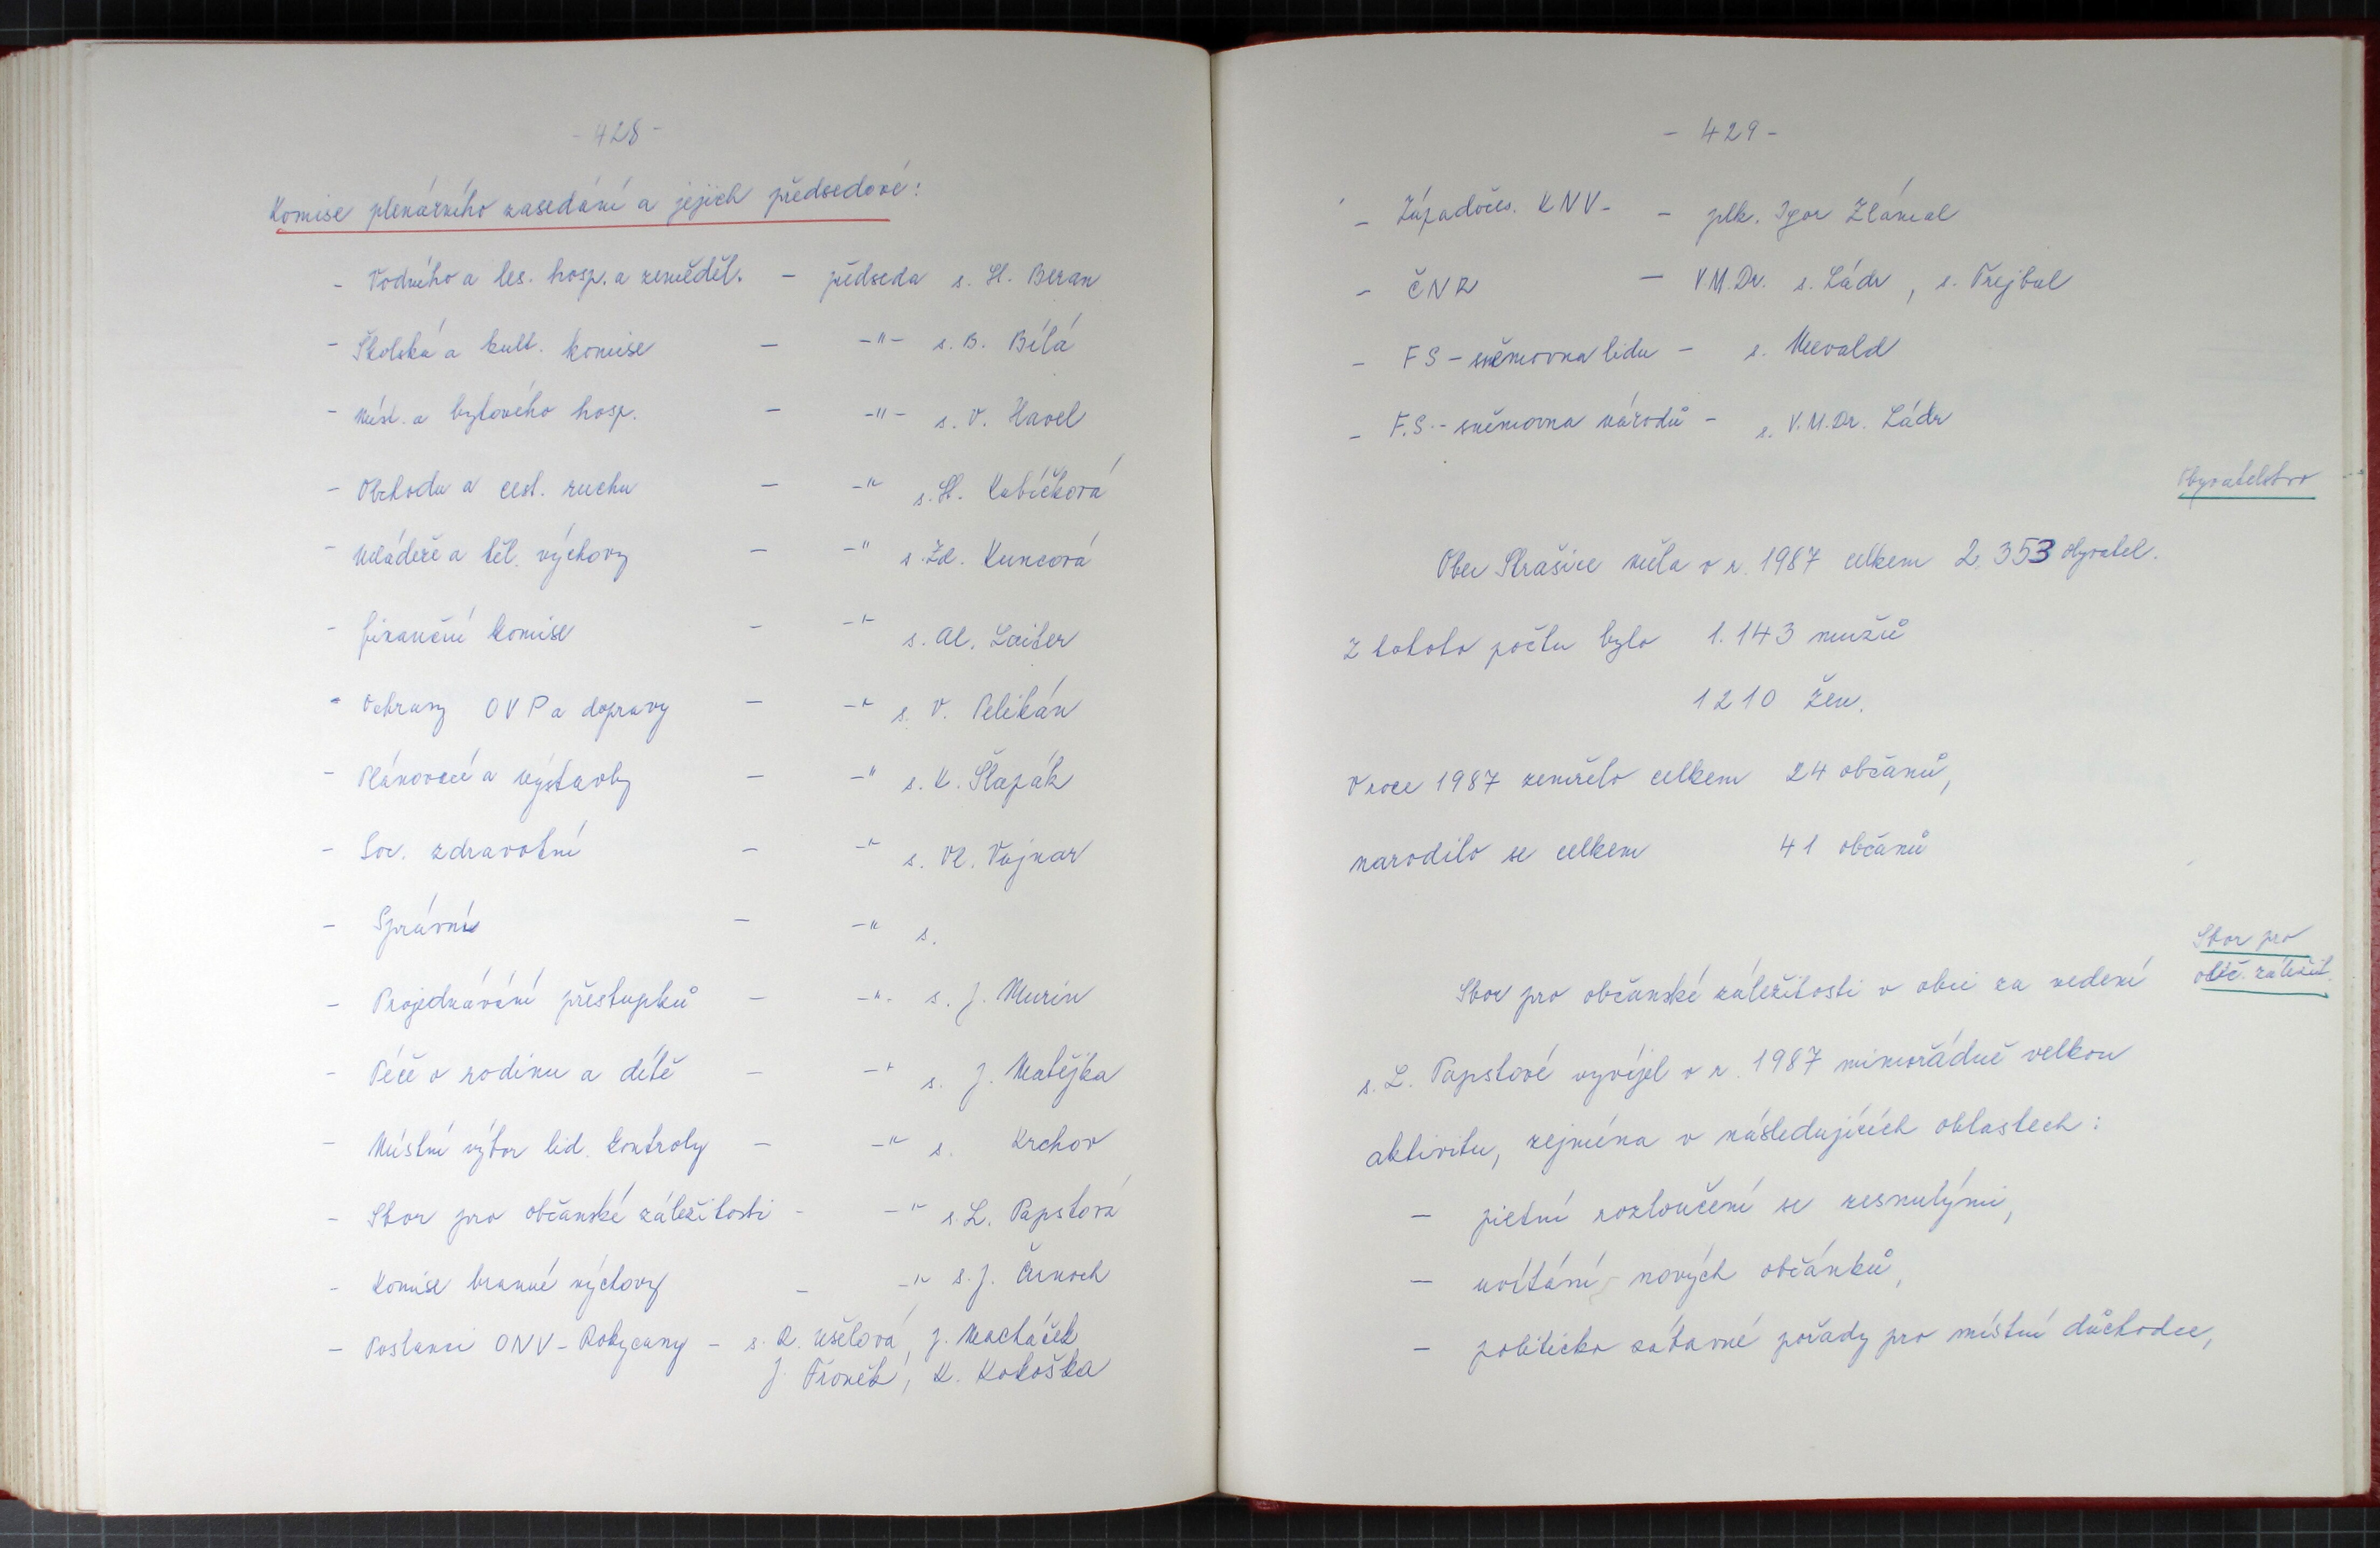 - 428 -
Komise plenárního zasedání a jejich předsedové:
- Vodního a les. hosp. a zeměděl. - předseda s. Sl. Beran
- Školská a kult. komise - -"- s. B. Bílá
- Míst. a bytového hosp. - -"- s. V. Havel
- Obchodu a cest. ruchu - -" s. Sl. Kubíčková
- Mládeže a těl. výchovy - -" s. Zd. Kuncová
- finanční komise - -" s. Al. Loiter
- Ochrany OVP a dopravy - -" s. V. Pelikán
- Plánovací a výstavby - -" s. K. Šlapák
- Soc. zdravotní - -" s. Vl. Vajnar
- Správní - -" s.
- Projednávání přestupků - -"- s. J. Murín
- Péče o rodinu a dítě - -" s. J. Matějka
- Místní výbor lid. kontroly - -" s. Krchov
- Sbor pro občanské záležitosti - -" s. L. Papstová
- Komise branné výchovy - -" s. J. Černoch
- Poslanci ONV - Rokycany - s. R. Ušelová, J. Macháček,
J. Froněk, K. Kokoška
- 429 -
- Západočes. KNV - - plk. Igor Zlámal
- ČNR - V.M.Dr. s. Ládr, s. Přejbal
- FS - sněmovna lidu - s. Muvald
- F.S. - sněmovna národů - s. V.M.Dr. Ládr
Obyvatelstvo
Obec Strašice měla v r. 1987 celkem 2.353 obyvatel.
Z tohoto počtu bylo 1.143 mužů
1210 žen.
V roce 1987 zemřelo celkem 24 občanů,
narodilo se celkem 41 občanů
Sbor pro
obč. záležit.
Sbor pro občanské záležitosti v obci za vedení
s. L. Papstové vyvíjel v r. 1987 mimořádně velkou
aktivitu, zejména v následujících oblastech:
- pietní rozloučení se zesnulými,
- uvítání nových občánků,
- politicko zábavné pořady pro místní důchodce,